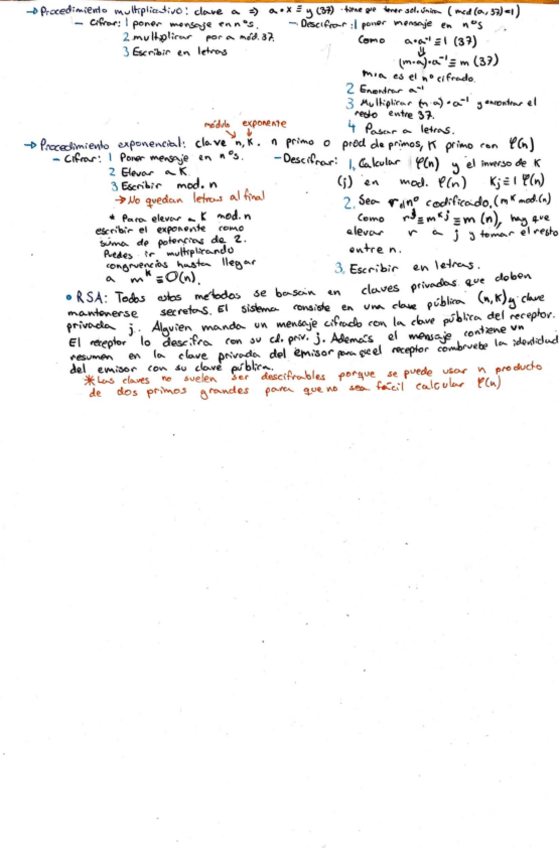 → Procedimiento multiplicativo: clave a ⇒ a•x ≡ y (37) tiene que tener sol. única (mcd(a,37)=1)
— Cifrar: 1 poner mensaje en nºs.
2 multiplicar por a mód. 37.
3 Escribir en letras
— Descifrar: 1 poner mensaje en nºs
Como a•a⁻¹ ≡ 1 (37)
⇓
(m•a)•a⁻¹ ≡ m (37)
m•a es el nº cifrado.
2 Encontrar a⁻¹
3 Multiplicar (m•a)•a⁻¹ y encontrar el
resto entre 37.
4 Pasar a letras.
módulo exponente
→ Procedimiento exponencial: clave n, K. n primo o prod de primos, K primo con φ(n)
— Cifrar: 1 Poner mensaje en nºs.
2 Elevar a K.
3 Escribir mod. n
→ No quedan letras al final
* Para elevar a K mod. n
escribir el exponente como
suma de potencias de 2.
Puedes ir multiplicando
congruencias hasta llegar
a mᴷ ≡ O(n).
— Descifrar: 1. Calcular φ(n) y el inverso de K
(j) en mod. φ(n) Kj ≡ 1 φ(n)
2. Sea r el nº codificado. (mᴷ mod.(n)
Como rʲ ≡ mᴷʲ ≡ m (n), hay que
elevar r a j y tomar el resto
entre n.
3. Escribir en letras.
• RSA: Todos estos métodos se basan en claves privadas que deben
mantenerse secretas. El sistema consiste en una clave pública (n,K) y clave
privada j. Alguien manda un mensaje cifrado con la clave pública del receptor.
El receptor lo descifra con su cl. priv. j. Además el mensaje contiene un
resumen en la clave privada del emisor para que el receptor compruebe la identidad
del emisor con su clave pública.
* Las claves no suelen ser descifrables porque se puede usar n producto
de dos primos grandes para que no sea fácil calcular φ(n)